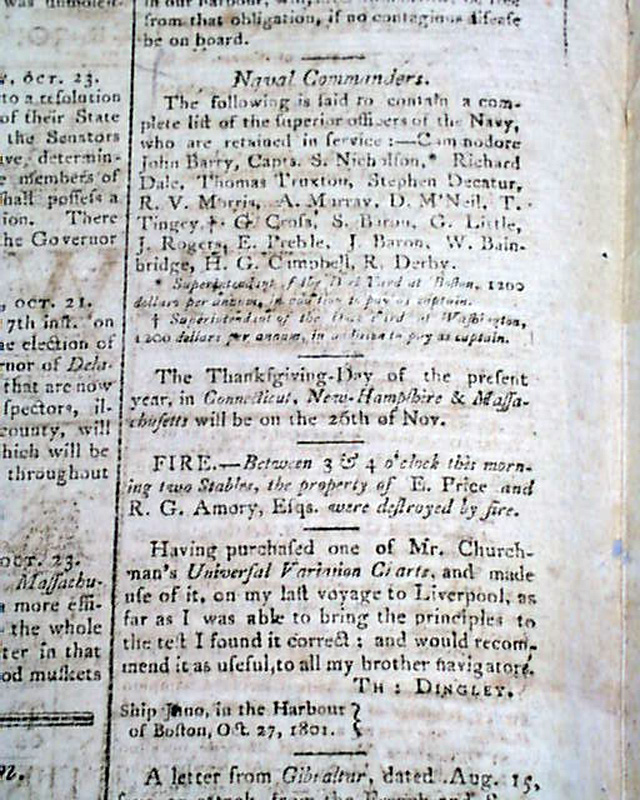 was
, oct. 23.
to a resolution
of their State
the Senators
ave, determin-
e members of
hall possess a
ion. There
he Governor
, oct. 21.
7th inst. on
he election of
rnor of Dela-
that are now
spectors, il-
county, will
hich will be
throughout
oct. 23.
Massachu-
a more effi-
the whole
ter in that
od muskets
from that obligation, if no contagious disease
be on board.
Naval Commanders.
The following is said to contain a com-
plete list of the superior officers of the Navy,
who are retained in service :—Commodore
John Barry, Capts. S. Nicholson,* Richard
Dale, Thomas Truxton, Stephen Decatur,
R. V. Morris, A. Murray, D. M'Neil, T.
Tingey,† G. Cross, S. Baron, G. Little,
J. Rogers, E. Preble, J. Baron, W. Bain-
bridge, H. G. Campbell, R. Derby.
* Superintendent of the Yard at Boston, 1200
dollars per annum, in addition to pay as captain.
† Superintendant of the Yard at Washington,
1200 dollars per annum, in addition to pay as captain.
The Thanksgiving-Day of the present
year, in Connecticut, New-Hampshire & Massa-
chusetts will be on the 26th of Nov.
FIRE.—Between 3 & 4 o'clock this morn-
ing two Stables, the property of E. Price and
R. G. Amory, Esqs. were destroyed by fire.
Having purchased one of Mr. Church-
man's Universal Variation Charts, and made
use of it, on my last voyage to Liverpool, as
far as I was able to bring the principles to
the test I found it correct ; and would recom-
mend it as useful, to all my brother navigators.
Th : Dingley.
Ship Juno, in the Harbour }
of Boston, Oct. 27, 1801.
A letter from Gibraltar, dated Aug. 15,